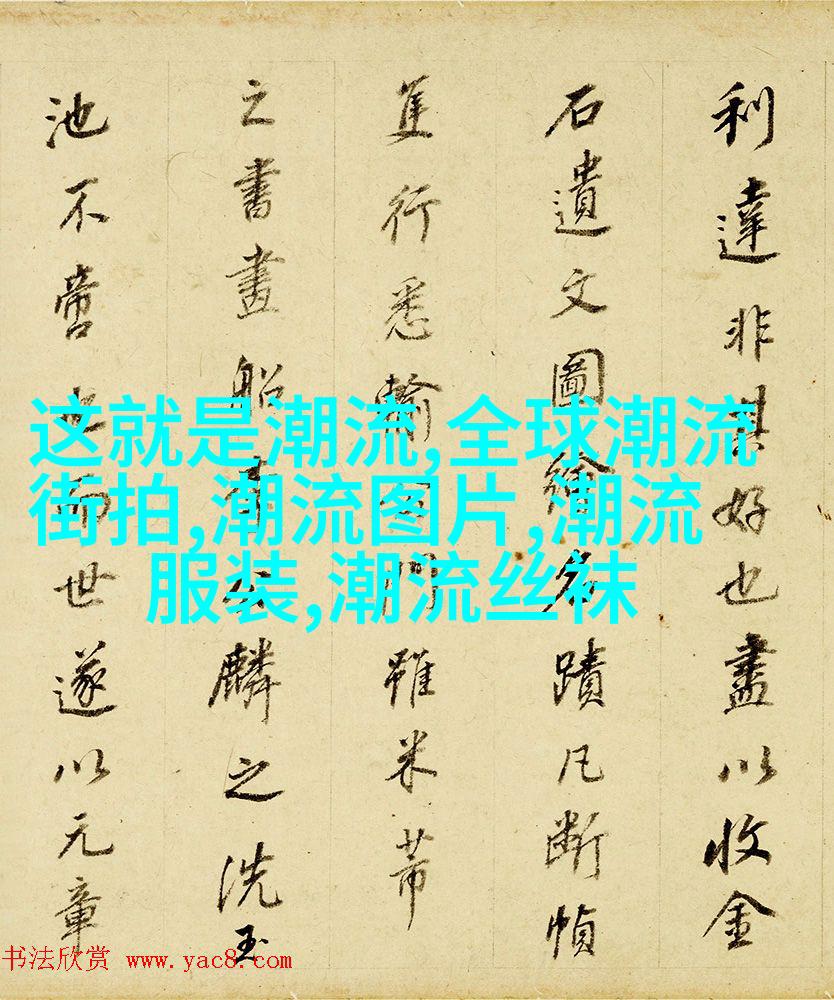 利達非其好也盡以收金
石遺文圖繪名蹟凡斷幀
隻行悉輸門雖米芾
之書畫船李公麟之洗玉
池不啻也而世遂以元章
这就是潮流,全球潮流
街拍,潮流图片,潮流
服装,潮流丝袜
书法欣赏 www.yac8.com